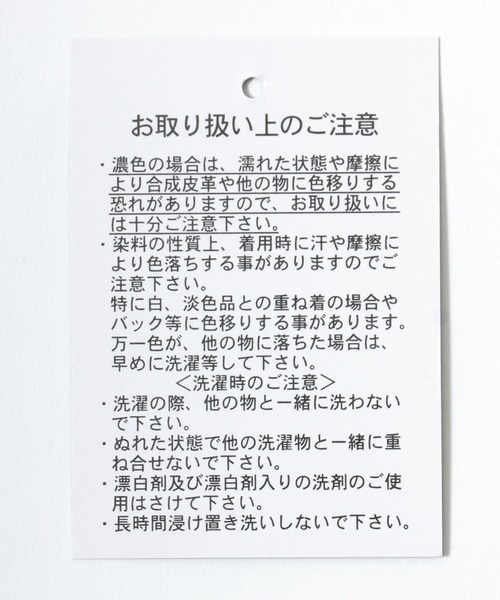 お取り扱い上のご注意
・濃色の場合は、濡れた状態や摩擦に
より合成皮革や他の物に色移りする
恐れがありますので、お取り扱いに
は十分ご注意下さい。
・染料の性質上、着用時に汗や摩擦に
より色落ちする事がありますのでご
注意下さい。
特に白、淡色品との重ね着の場合や
バック等に色移りする事があります。
万一色が、他の物に落ちた場合は、
早めに洗濯等して下さい。
＜洗濯時のご注意＞
・洗濯の際、他の物と一緒に洗わない
で下さい。
・ぬれた状態で他の洗濯物と一緒に重
ね合せないで下さい。
・漂白剤及び漂白剤入りの洗剤のご使
用はさけて下さい。
・長時間浸け置き洗いしないで下さい。